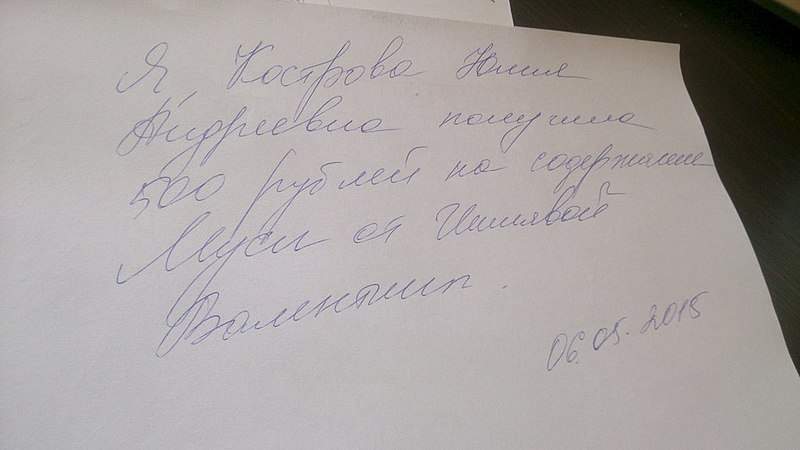 Я, Кострова Юлия
Андреевна получила
500 рублей на содержание
Муси от
Валентины.
06.05.2015